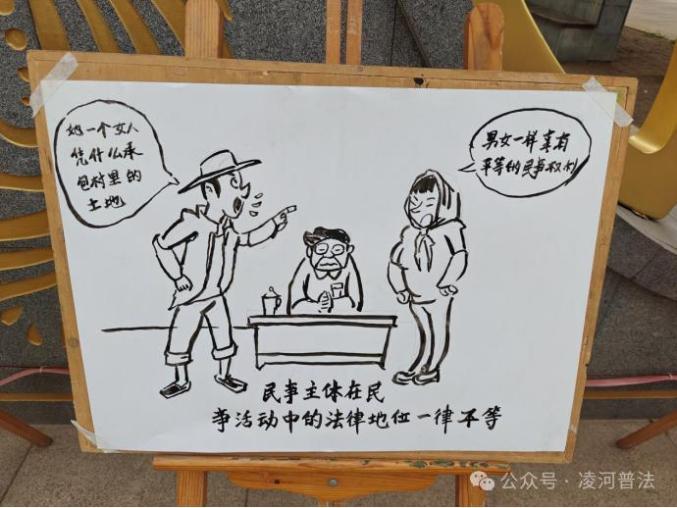 她一个女人
凭什么承
包村里的
土地
男女一样享有
平等的民事权利
民事主体在民
事活动中的法律地位一律平等
公众号·凌河普法